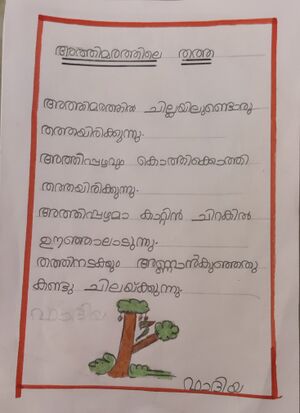 അത്തിമരത്തിലെ തത്ത
അത്തിമരത്തിൽ ചില്ലയിലുണ്ടൊരു
തത്തയിരിക്കുന്നു.
അത്തിപ്പഴവും കൊത്തിക്കൊത്തി
തത്തയിരിക്കുന്നു.
അത്തിപ്പഴമാ കാറ്റിൻ ചിറകിൽ
ഊഞ്ഞാലാടുന്നു.
തത്തിനടക്കും അണ്ണാൻകുഞ്ഞതു
കണ്ടു ചിലയ്ക്കുന്നു.
ഫാദിയ
ഫാദിയ